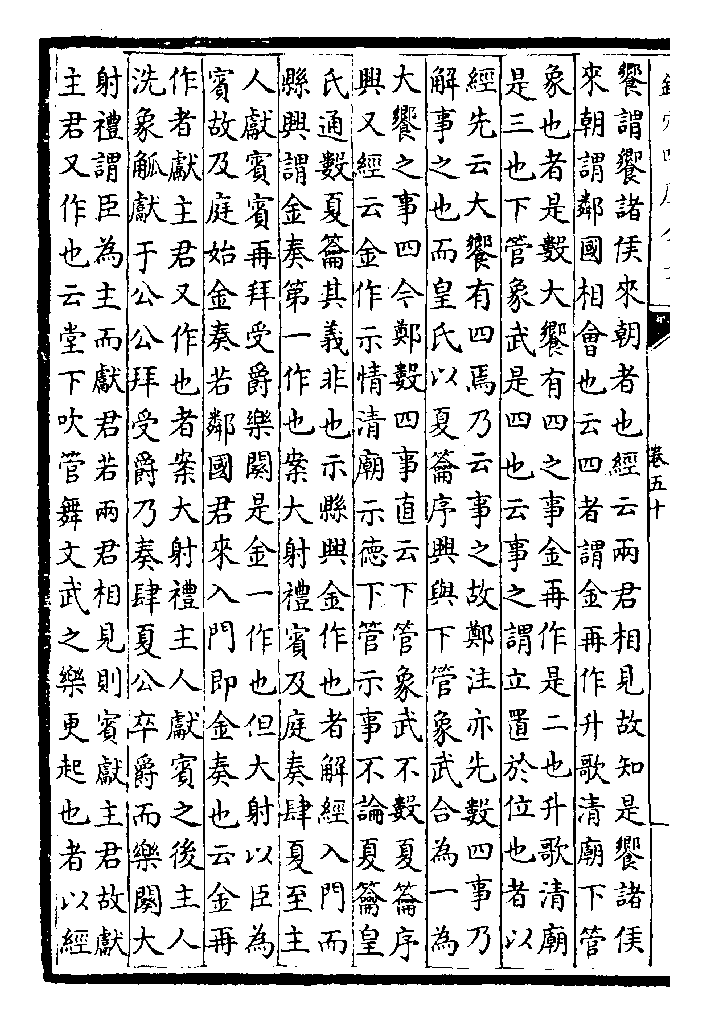 卷五十
饗謂饗諸侯來朝者也經云兩君相見故知是饗諸侯
來朝謂鄰國相會也云四者謂金再作升歌清廟下管
象也者是數大饗有四之事金再作是二也升歌清廟
是三也下管象武是四也云事之謂立置於位也者以
經先云大饗有四焉乃云事之故鄭注亦先數四事乃
解事之也而皇氏以夏籥序興與下管象武合為一為
大饗之事四今鄭數四事直云下管象武不數夏籥序
興又經云金作示情清廟示德下管示事不論夏籥皇
氏通數夏籥其義非也示縣興金作也者解經入門而
縣興謂金奏第一作也案大射禮賓及庭奏肆夏至主
人獻賓賓再拜受爵樂闋是金一作也但大射以臣為
賓故及庭始金奏若鄰國君來入門即金奏也云金再
作者獻主君又作也者案大射禮主人獻賓之後主人
洗象觚獻于公公拜受爵乃奏肆夏公卒爵而樂闋大
射禮謂臣為主而獻君若兩君相見則賓獻主君故獻
主君又作也云堂下吹管舞文武之樂更起也者以經